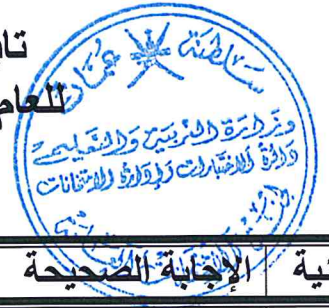 تا
للعام
سلطنة عُمان
وزارة التربية والتعليم
دائرة الاختبارات وإدارة الامتحانات
ئية الإجابة الصحيحة